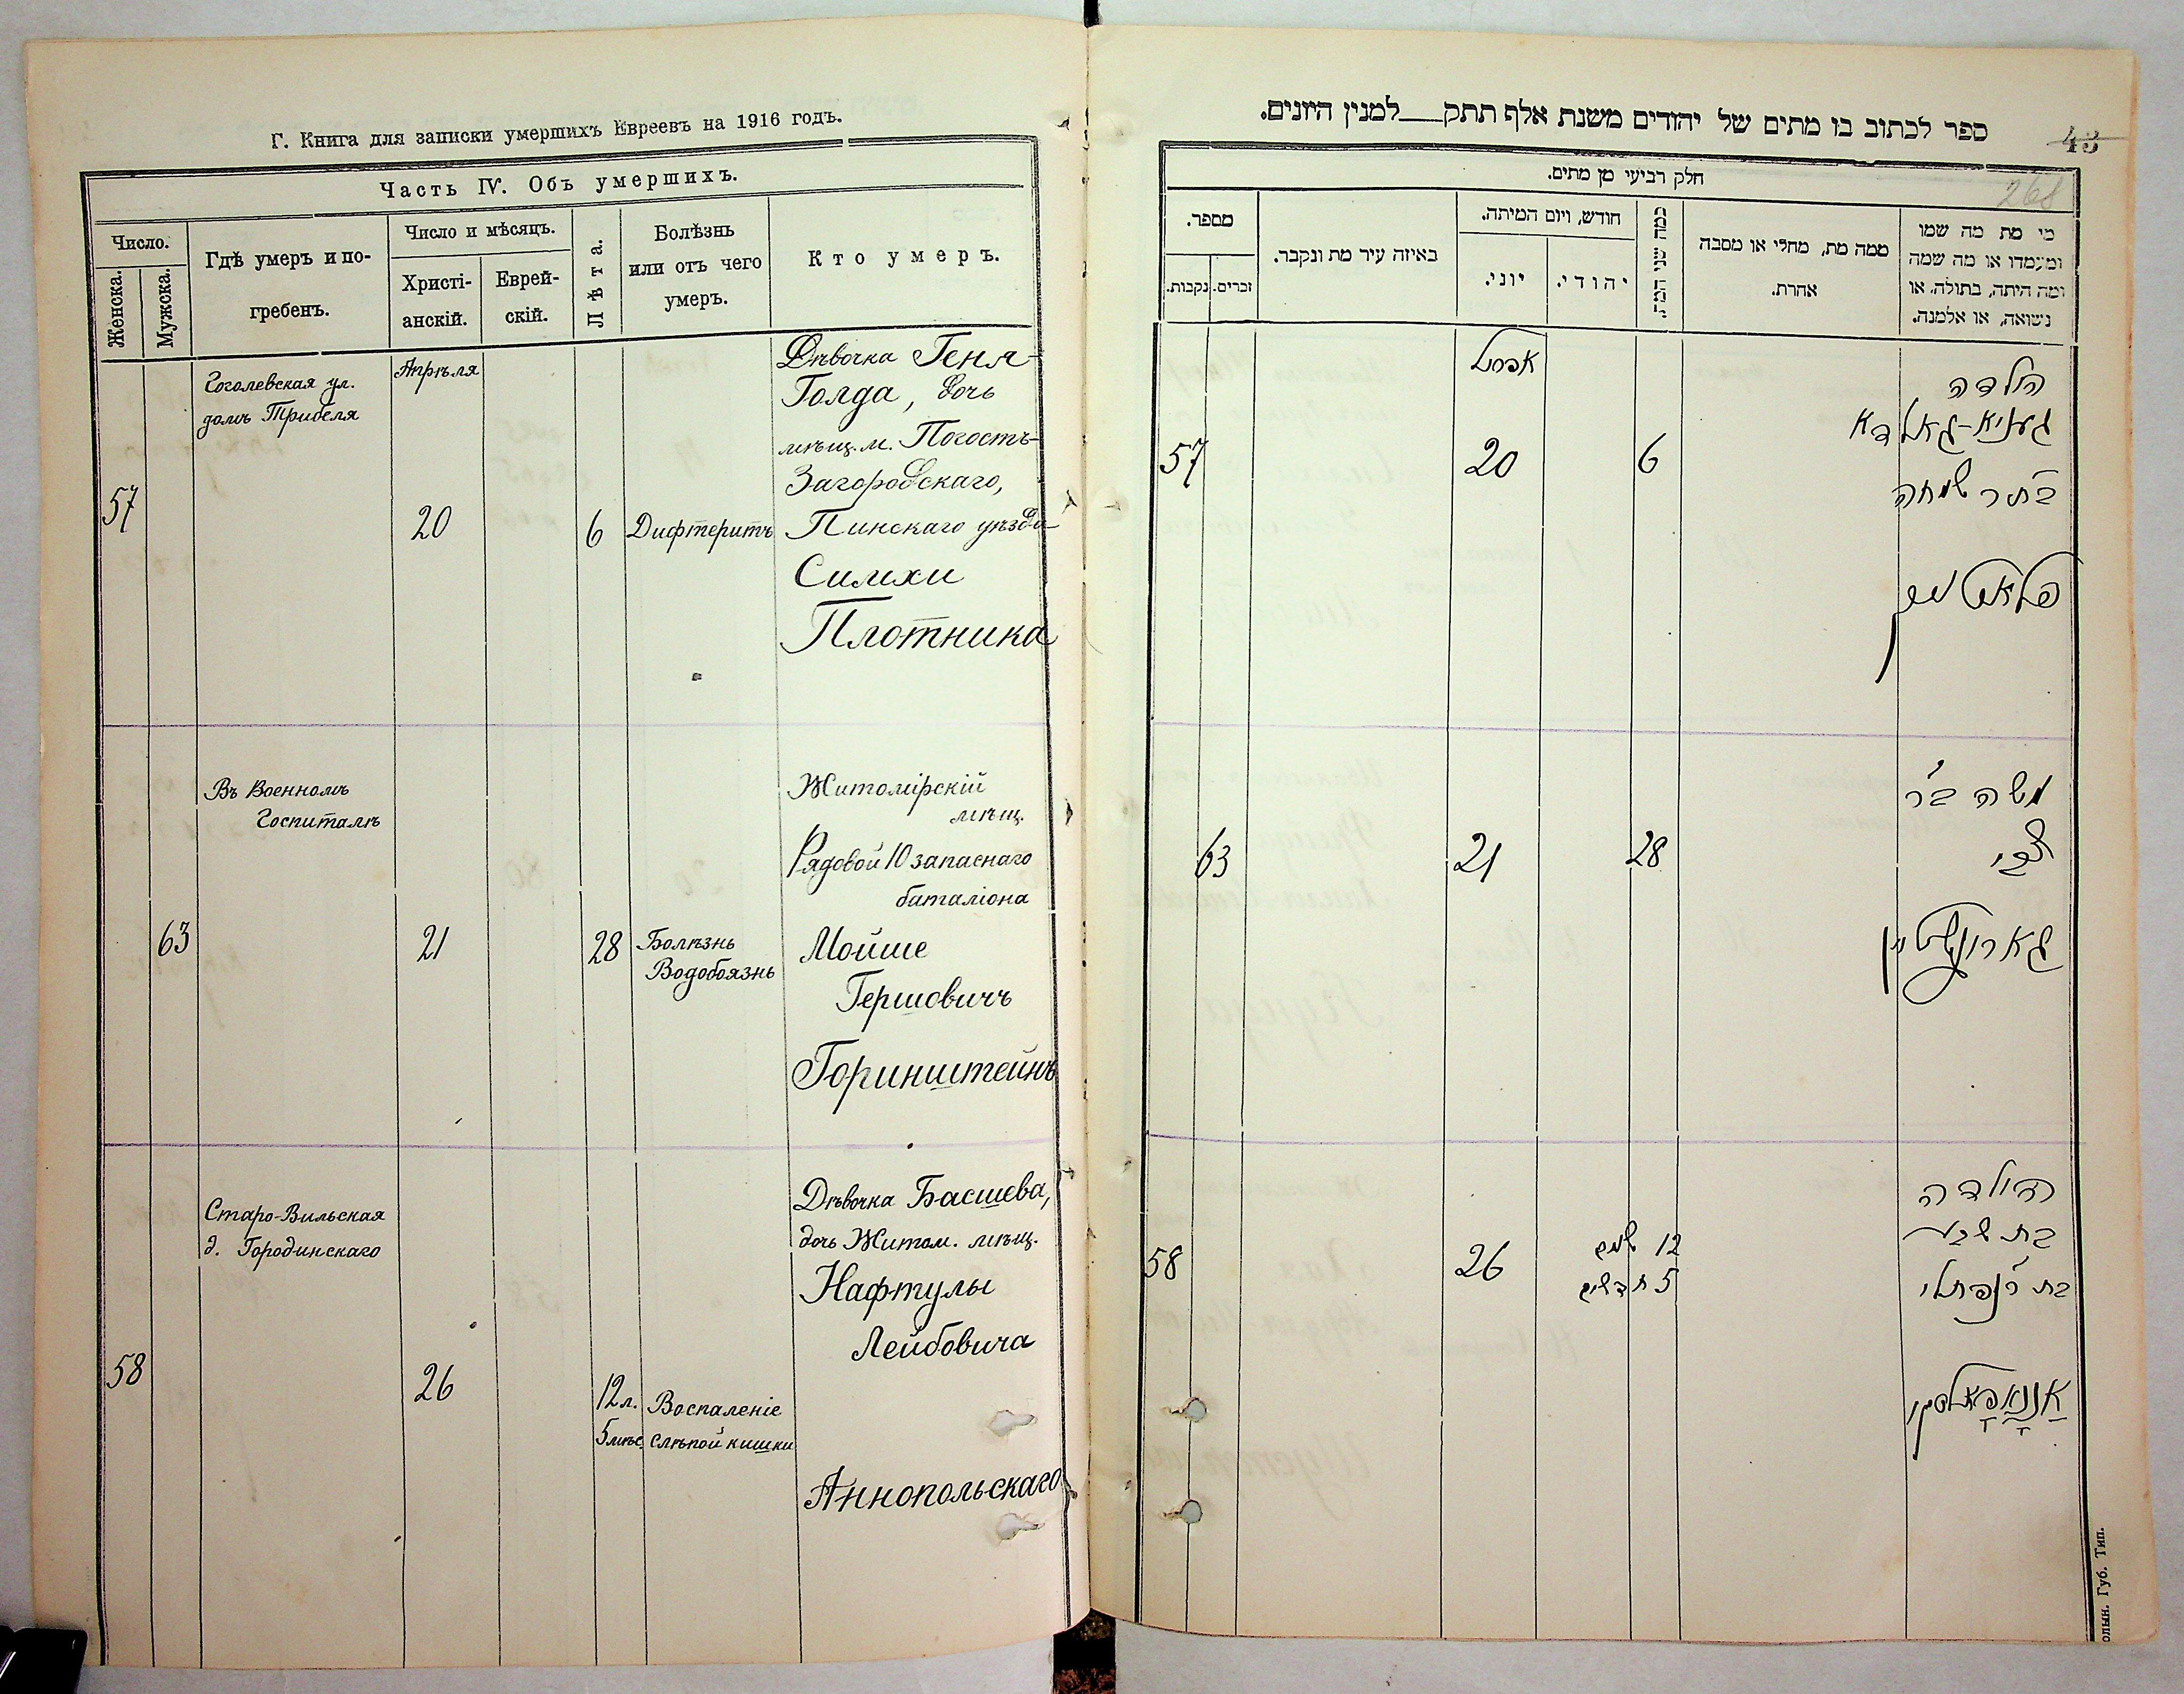 Г. Книга для записки умершихъ Евреевъ на 1916 годъ.
Часть IV. Объ умершихъ.
Число.
Женска.
Мужска.
Гдѣ умеръ и по-
гребенъ.
Число и мѣсяцъ.
Христі-
анскій.
Еврей-
скій.
Лѣта.
Болѣзнь
или отъ чего
умеръ.
Кто умеръ.
57
Гоголевская ул.
домъ Трибеля
Апрѣля
20
6
Дифтеритъ
Дѣвочка Геня-
Голда, дочь
мѣщ. м. Погостъ-
Загородскаго,
Пинскаго уѣзда
Симхи
Плотника
63
Въ Военномъ
Госпиталѣ
21
28
Болѣзнь
Водобоязнь
Житомірскій
мѣщ.
Рядовой 10 запаснаго
баталіона
Мойше
Гершовичъ
Горинштейнъ
58
Старо-Вильская
д. Городинскаго
26
12 л.
5 мѣс
Воспаленіе
слѣпой кишки
Дѣвочка Басшева,
дочь Житом. мѣщ.
Нафтулы
Лейбовича
Аннопольскаго
ספר לכתוב בו מתים של יהודים משנת אלף תתק___למנין היונים.
43
268
חלק רביעי מן מתים.
מספר.
נקבות.
זכרים.
באיזה עיר מת ונקבר.
חודש, ויום המיתה.
יוני.
יהודי.
כמה שני המת.
ממה מת, מחלי או מסבה
אחרת.
מי מת מה שמו
ומעמדו או מה שמה
ומה היתה, בתולה, או
נשואה, או אלמנה.
57
אפריל
20
6
הילדה
געניא-גאלדא
בת ר שמחה
פלאטניק
63
21
28
משה בר'
צבי
גארינשטיין
58
26
12 שנים
5 חדשים
הילדה
בת שבע
בת ר' נפתלי
אַנאָפּאָלסקי
олын. Губ. Тип.